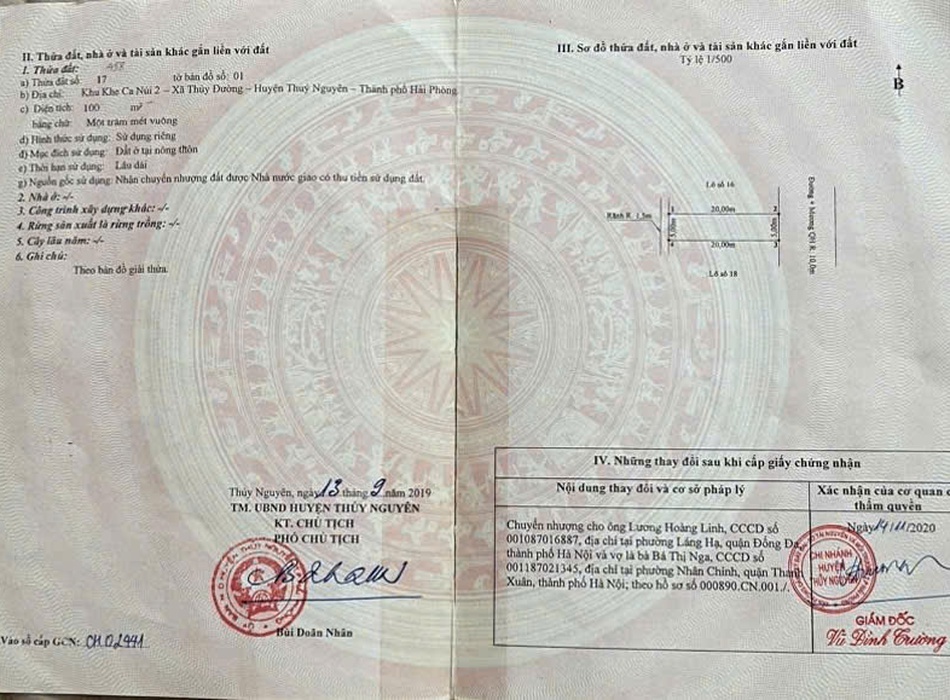 II. Thửa đất, nhà ở và tài sản khác gắn liền với đất
1. Thửa đất: 458
a) Thửa đất số: 17 tờ bản đồ số: 01
b) Địa chỉ: Khu Khe Ca Núi 2 – Xã Thủy Đường – Huyện Thuỷ Nguyên – Thành phố Hải Phòng
c) Diện tích: 100 m²
bằng chữ: Một trăm mét vuông
d) Hình thức sử dụng: Sử dụng riêng
đ) Mục đích sử dụng: Đất ở tại nông thôn
e) Thời hạn sử dụng: Lâu dài
g) Nguồn gốc sử dụng: Nhận chuyển nhượng đất được Nhà nước giao có thu tiền sử dụng đất.
2. Nhà ở: -/-
3. Công trình xây dựng khác: -/-
4. Rừng sản xuất là rừng trồng: -/-
5. Cây lâu năm: -/-
6. Ghi chú:
Theo bản đồ giải thửa.
Thủy Nguyên, ngày 13 tháng 9 năm 2019
TM. UBND HUYỆN THỦY NGUYÊN
KT. CHỦ TỊCH
PHÓ CHỦ TỊCH
Bùi Doãn Nhân
Vào sổ cấp GCN: CH02441
III. Sơ đồ thửa đất, nhà ở và tài sản khác gắn liền với đất
Tỷ lệ 1/500
B
Lô số 16
Rãnh R. 1,5m
1 20,00m 2
5,00m
5,00m
4 20,00m 3
Lô số 18
Đường + Mương QH R. 10,0m
IV. Những thay đổi sau khi cấp giấy chứng nhận
Nội dung thay đổi và cơ sở pháp lý
Xác nhận của cơ quan
thẩm quyền
Chuyển nhượng cho ông Lương Hoàng Linh, CCCD số
001087016887, địa chỉ tại phường Láng Hạ, quận Đống Đa,
thành phố Hà Nội và vợ là bà Bá Thị Nga, CCCD số
001187021345, địa chỉ tại phường Nhân Chính, quận Thanh
Xuân, thành phố Hà Nội; theo hồ sơ số 000890.CN.001./.
Ngày 14/11/2020
CHI NHÁNH
HUYỆN
THỦY NGUYÊN
GIÁM ĐỐC
Vũ Đình Trường